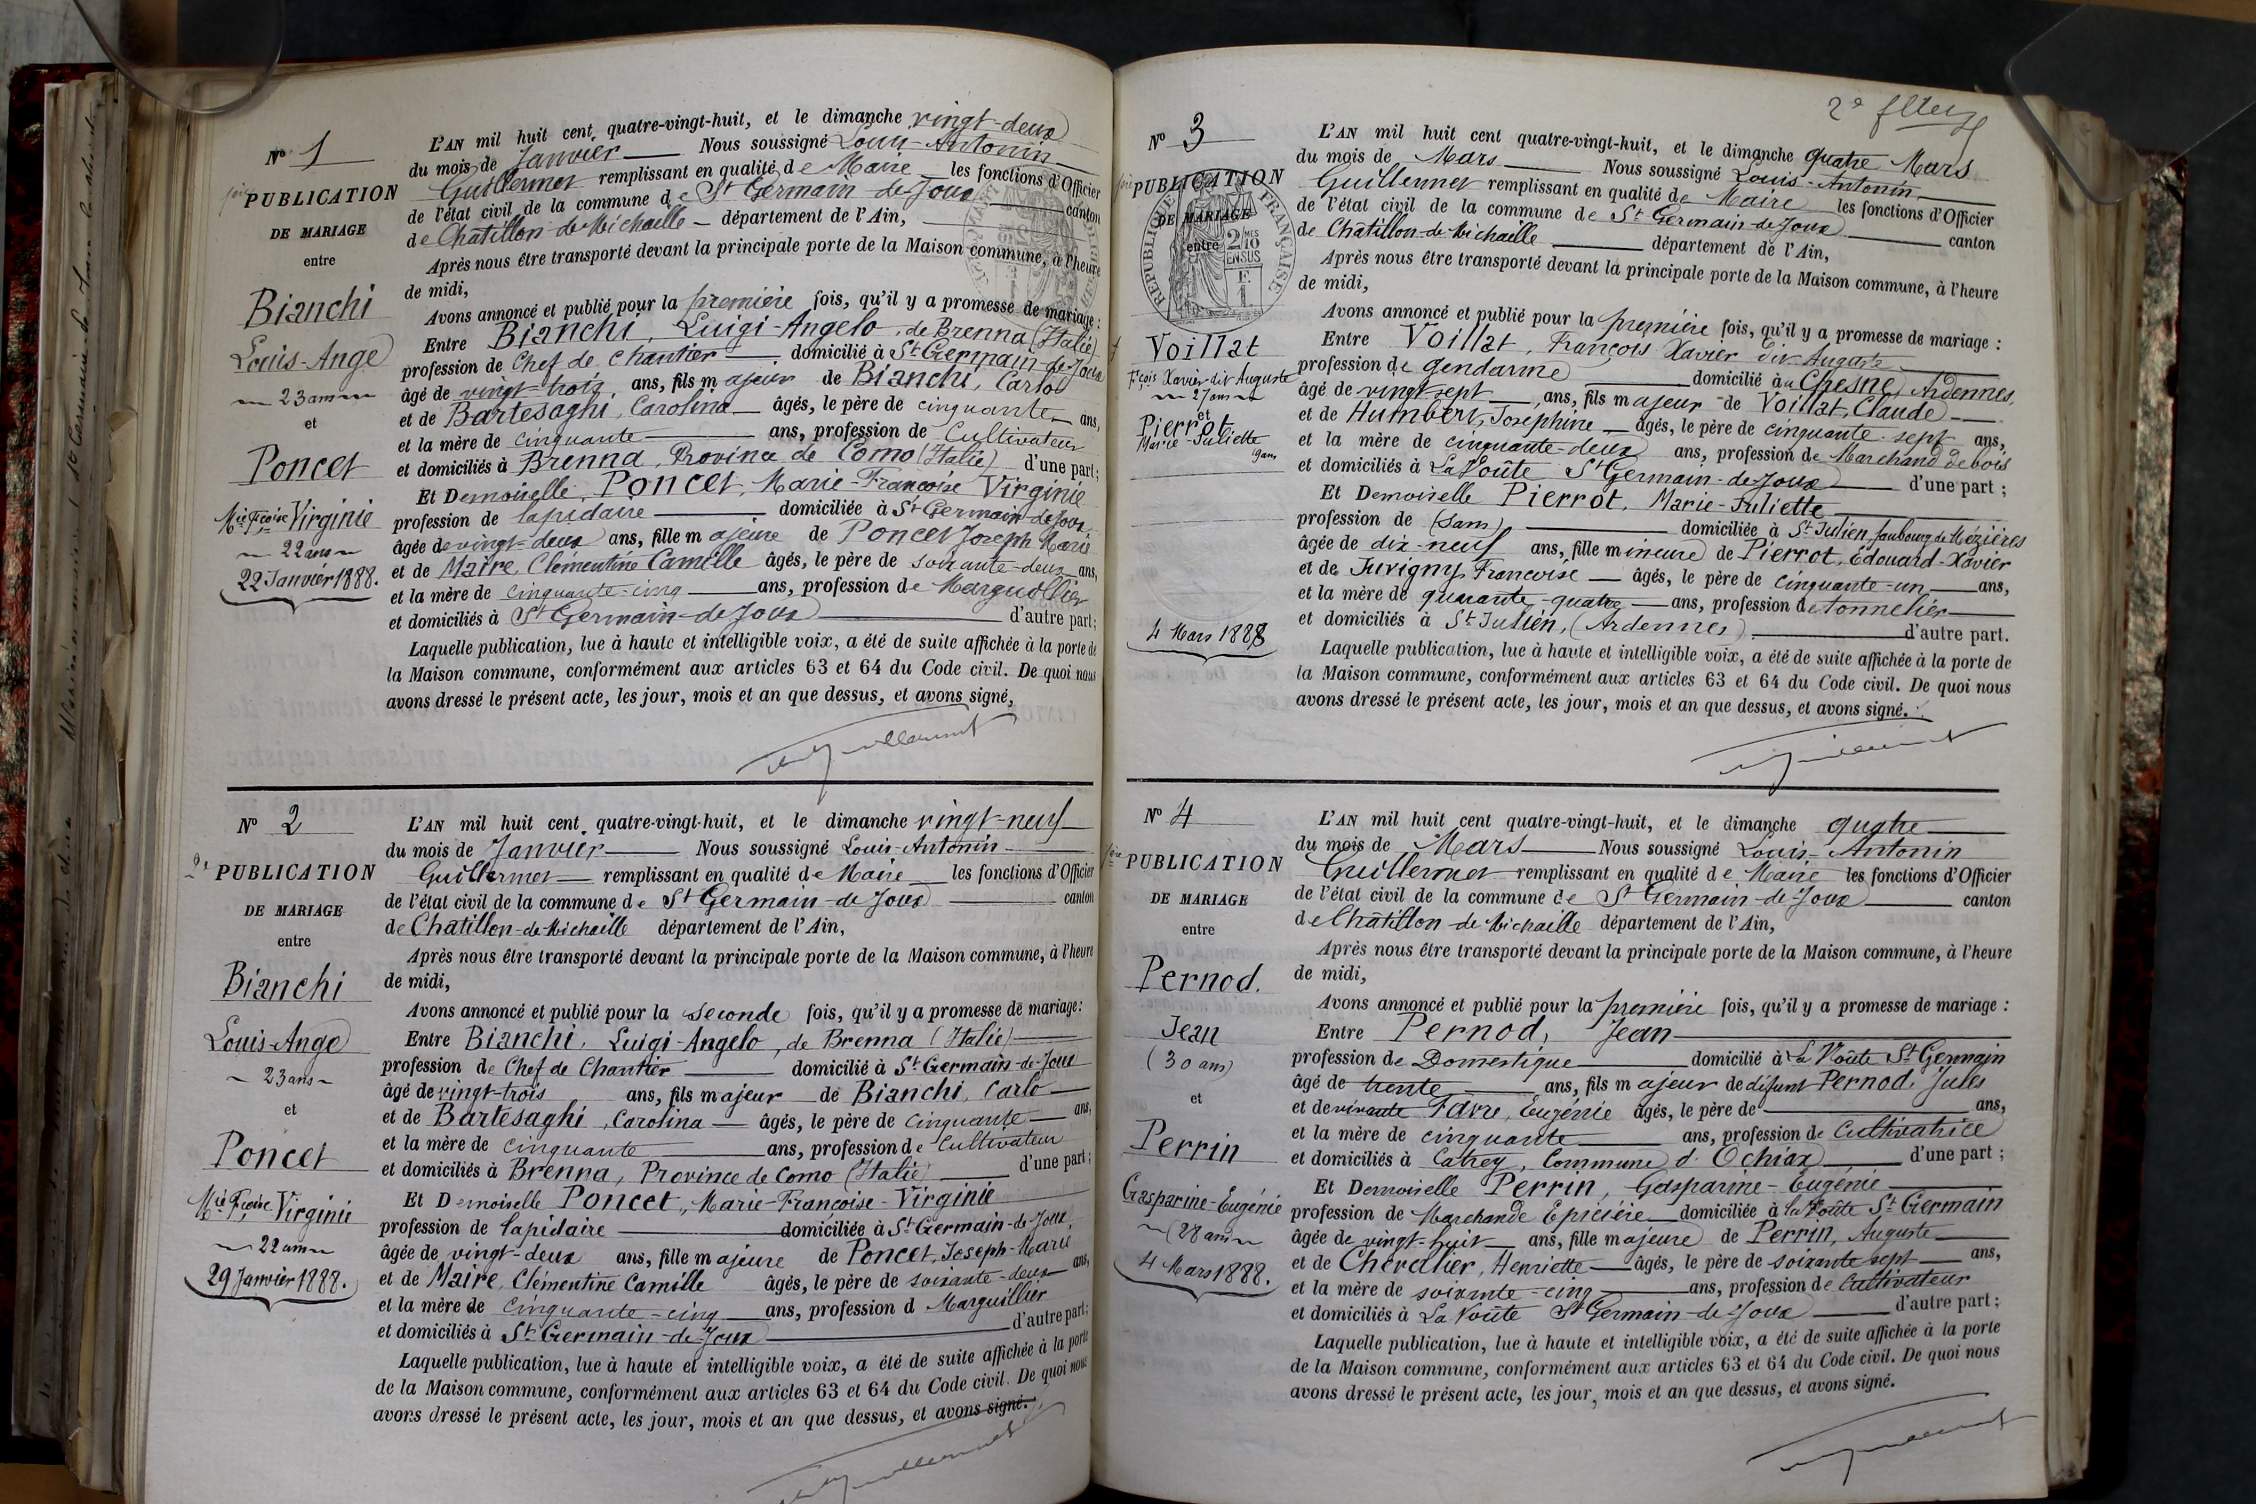 Nº 1
1ère PUBLICATION
DE MARIAGE
entre
Bianchi
Louis-Ange
23 ans
et
Poncet
Mie Fçoise Virginie
22 ans
22 Janvier 1888.
L'AN mil huit cent quatre-vingt-huit, et le dimanche vingt-deux
du mois de Janvier Nous soussigné Louis-Antonin
Guillermet remplissant en qualité de Maire les fonctions d'Officier
de l'état civil de la commune de St Germain-de-Joux canton
de Châtillon-de-Michaille département de l'Ain,
Après nous être transporté devant la principale porte de la Maison commune, à l'heure
de midi,
Avons annoncé et publié pour la première fois, qu'il y a promesse de mariage :
Entre Bianchi, Luigi-Angelo, de Brenna (Italie)
profession de Chef de Chantier domicilié à St Germain-de-Joux
âgé de vingt-trois ans, fils majeur de Bianchi, Carlo
et de Bartesaghi, Carolina âgés, le père de cinquante ans,
et la mère de cinquante ans, profession de Cultivateur
et domiciliés à Brenna, Province de Como (Italie) d'une part ;
Et Demoiselle Poncet, Marie-Francoise Virginie
profession de lapidaire domiciliée à St Germain-de-Joux
âgée de vingt-deux ans, fille majeure de Poncet Joseph Marie
et de Maire, Clémentine Camille âgés, le père de soixante-deux ans,
et la mère de cinquante-cinq ans, profession de Marguillier
et domiciliés à St Germain-de-Joux d'autre part ;
Laquelle publication, lue à haute et intelligible voix, a été de suite affichée à la porte de
la Maison commune, conformément aux articles 63 et 64 du Code civil. De quoi nous
avons dressé le présent acte, les jour, mois et an que dessus, et avons signé,
Nº 2
2e PUBLICATION
DE MARIAGE
entre
Bianchi
Louis-Ange
23 ans
et
Poncet
Mie Fçoise Virginie
22 ans
29 Janvier 1888.
L'AN mil huit cent quatre-vingt-huit, et le dimanche vingt-neuf
du mois de Janvier Nous soussigné Louis-Antonin
Guillermet remplissant en qualité de Maire les fonctions d'Officier
de l'état civil de la commune de St Germain-de-Joux canton
de Châtillon-de-Michaille département de l'Ain,
Après nous être transporté devant la principale porte de la Maison commune, à l'heure
de midi,
Avons annoncé et publié pour la seconde fois, qu'il y a promesse de mariage :
Entre Bianchi, Luigi-Angelo, de Brenna (Italie)
profession de Chef de Chantier domicilié à St Germain-de-Joux
âgé de vingt-trois ans, fils majeur de Bianchi, Carlo
et de Bartesaghi, Carolina âgés, le père de cinquante ans,
et la mère de cinquante ans, profession de Cultivateur
et domiciliés à Brenna, Province de Como (Italie) d'une part ;
Et Demoiselle Poncet, Marie-Françoise-Virginie
profession de lapidaire domiciliée à St Germain-de-Joux,
âgée de vingt-deux ans, fille majeure de Poncet, Joseph-Marie
et de Maire, Clémentine Camille âgés, le père de soixante-deux ans,
et la mère de cinquante-cinq ans, profession d Marguillier
et domiciliés à St Germain-de-Joux d'autre part ;
Laquelle publication, lue à haute et intelligible voix, a été de suite affichée à la porte
de la Maison commune, conformément aux articles 63 et 64 du Code civil. De quoi nous
avons dressé le présent acte, les jour, mois et an que dessus, et avons signé.
Nº 3
1ère PUBLICATION
DE MARIAGE
entre
REPUBLIQUE FRANÇAISE
2 MES
10
EN SUS
Voillat
Fçois Xavier dit Auguste
27 ans
et
Pierrot
Marie-Juliette
19 ans
4 Mars 1888
2e
L'AN mil huit cent quatre-vingt-huit, et le dimanche quatre Mars
du mois de Mars Nous soussigné Louis-Antonin
Guillermet remplissant en qualité de Maire les fonctions d'Officier
de l'état civil de la commune de St Germain-de-Joux canton
de Châtillon-de-Michaille département de l'Ain,
Après nous être transporté devant la principale porte de la Maison commune, à l'heure
de midi,
Avons annoncé et publié pour la première fois, qu'il y a promesse de mariage :
Entre Voillat, François Xavier dit Auguste
profession de gendarme domicilié au Chesne, Ardennes,
âgé de vingt sept ans, fils majeur de Voillat, Claude
et de Humbert, Joséphine âgés, le père de cinquante-sept ans,
et la mère de cinquante-deux ans, profession de Marchand de bois
et domiciliés à La Voûte St Germain-de-Joux d'une part ;
Et Demoiselle Pierrot, Marie-Juliette
profession de (sans) domiciliée à St Julien, faubourg de Mézières
âgée de dix-neuf ans, fille mineure de Pierrot, Edouard-Xavier
et de Juvigny, Francoise âgés, le père de cinquante-un ans,
et la mère de quarante-quatre ans, profession de tonnelier
et domiciliés à St Julien, (Ardennes) d'autre part.
Laquelle publication, lue à haute et intelligible voix, a été de suite affichée à la porte de
la Maison commune, conformément aux articles 63 et 64 du Code civil. De quoi nous
avons dressé le présent acte, les jour, mois et an que dessus, et avons signé.
Nº 4
1ère PUBLICATION
DE MARIAGE
entre
Pernod.
Jean
(30 ans)
et
Perrin
Gasparine-Eugénie
(28 ans
4 Mars 1888.
L'AN mil huit cent quatre-vingt-huit, et le dimanche quatre
du mois de Mars Nous soussigné Louis-Antonin
Guillermet remplissant en qualité de Maire les fonctions d'Officier
de l'état civil de la commune de St Germain-de-Joux canton
de Châtillon-de-Michaille département de l'Ain,
Après nous être transporté devant la principale porte de la Maison commune, à l'heure
de midi,
Avons annoncé et publié pour la première fois, qu'il y a promesse de mariage :
Entre Pernod, Jean
profession de Domestique domicilié à La Voûte St Germain
âgé de trente ans, fils majeur de défunt Pernod, Jules
et de vivante Favre, Eugénie âgés, le père de ans,
et la mère de cinquante ans, profession de Cultivatrice
et domiciliés à Catrey, Commune d'Ochiaz d'une part ;
Et Demoiselle Perrin, Gasparine-Eugénie
profession de Marchande Epicière domiciliée à la Voûte St Germain
âgée de vingt-huit ans, fille majeure de Perrin, Auguste
et de Chevalier, Henriette âgés, le père de soixante sept ans,
et la mère de soixante-cinq ans, profession de Cultivateur
et domiciliés à La Voûte St Germain-de-Joux d'autre part ;
Laquelle publication, lue à haute et intelligible voix, a été de suite affichée à la porte
de la Maison commune, conformément aux articles 63 et 64 du Code civil. De quoi nous
avons dressé le présent acte, les jour, mois et an que dessus, et avons signé.